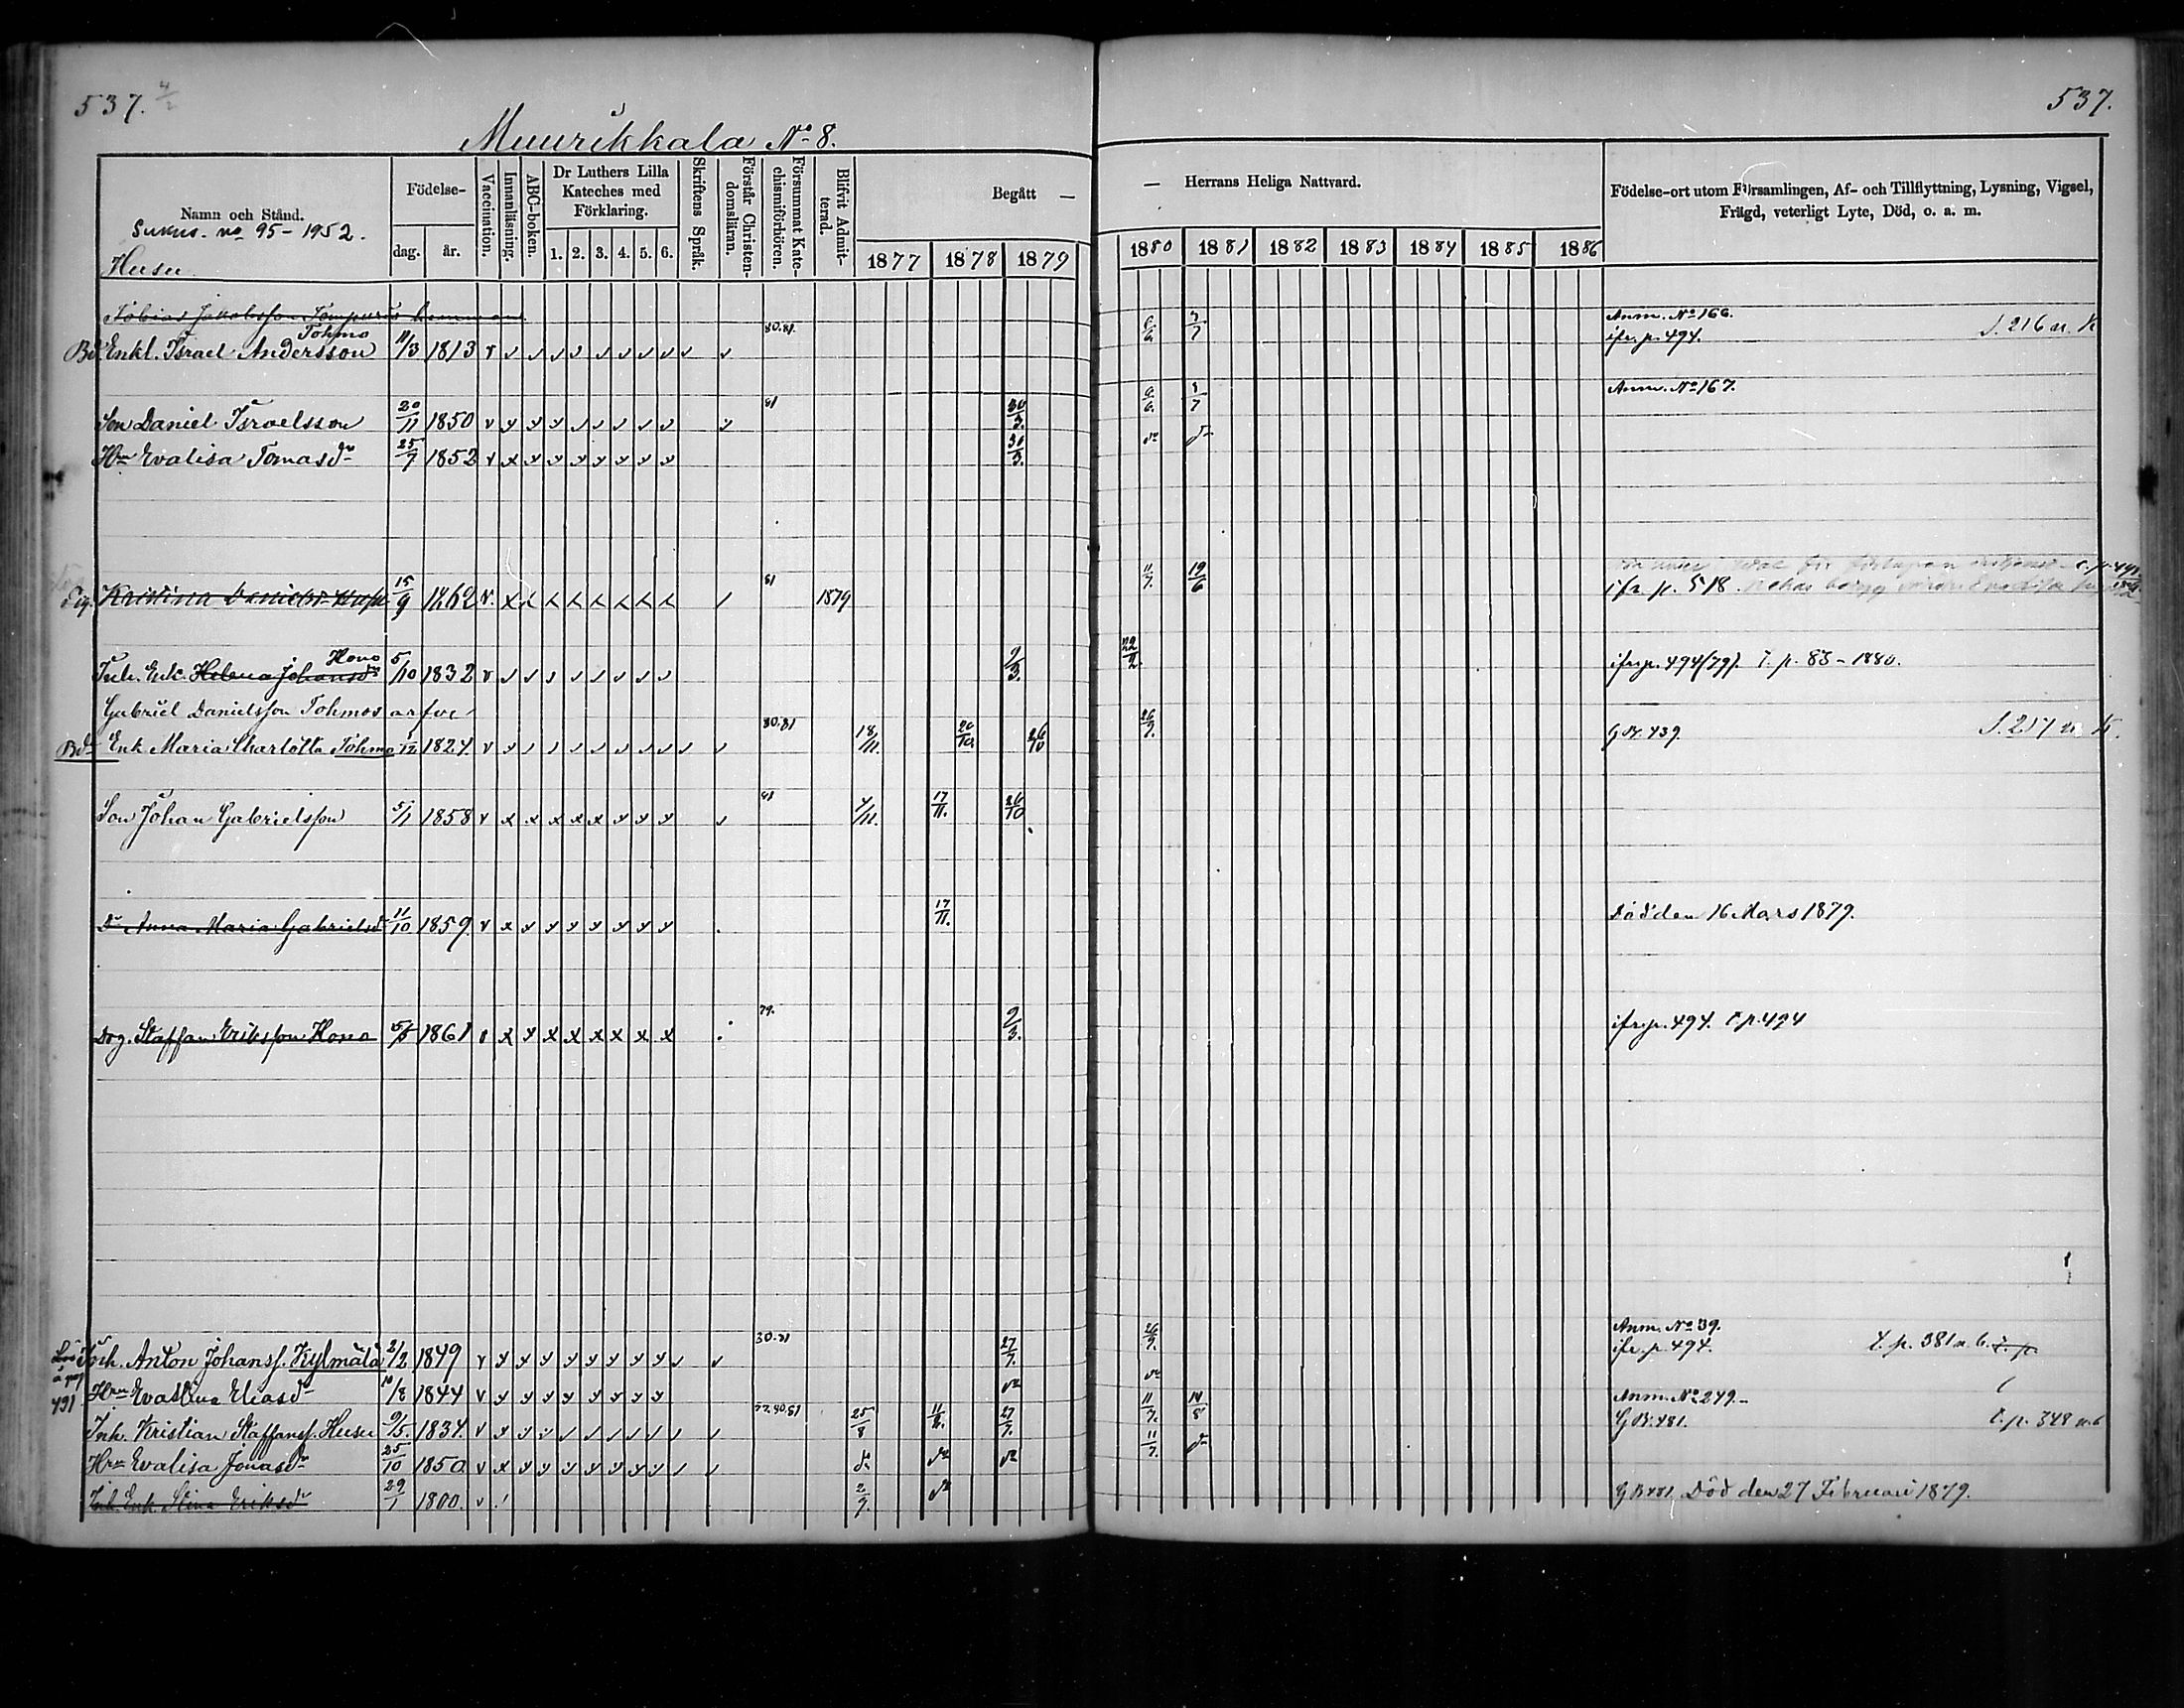 537. 4/2
537.
Muurikkala No 8.
Namn och Stånd.
Sukus. no 95-1952.
Husu
Födelse-
dag. år.
Vaccination.
Innanläsning.
ABC-boken.
Dr Luthers Lilla Kateches med Förklaring.
1. 2. 3. 4. 5. 6.
Skriftens Språk.
Förstår Christendomsläran.
Försummat Katechismiförhören.
Blifvit Admitterad.
Begått — — Herrans Heliga Nattvard.
1877 1878 1879 1880 1881 1882 1883 1884 1885 1886
Födelse-ort utom Församlingen, Af- och Tillflyttning, Lysning, Vigsel,
Frägd, veterligt Lyte, Död, o. a. m.
Tobias Jakobsson
Tohmo 80.81. 6/6. 3/7 Anm. No 166.
Bd. Enkl. Israel Andersson 11/3 1813 ifr. p. 494. S. 216 n. K
81 6/6. 3/7 Anm. No 167.
Son Daniel Israelsson 20/11 1850 30/3.
Hru Evalisa Tomasdr 25/7 1852 30/3. dr dr
Pig. Kristina Daniels 15/9 1862 81 1879 11/7. 19/6 ifr p. 518.
Hono
Inh. Enk. Helena Johansdr 5/10 1832 9/3. 22/2. ifr. p. 494(79). T. p. 83-1880.
Gabriel Danielsson Tohmos arfve
Bdr Enk Maria Charlotta Tohmo 1824. 80.81 18/11. 20/10 26/10 26/9. G Bk. 439. S. 217 n K.
Son Johan Gabrielsson 5/1 1858 81 4/11. 17/11. 26/10
Dr Anna Maria Gabrielsdr 11/10 1859. 17/11. Död den 16 Mars 1879.
Drg. Staffan Eriksson Hono 5/5 1861 79. 9/3. ifr. p. 494. T. p. 494
Inh. Anton Johanss. Kylmälä 2/2 1849 27/7. 26/9. Anm. No 39.
ifr. p. 494. T. p. 381 a. b. T. p.
à pag 491
Hru Evastina Eliasdr 10/8 1844 dr dr
Inh. Kristian Staffanss. Husu 9/5. 1834. 25/8 11/11. 27/7. 11/7. 14/8 Anm. No 249.-
G Bk. 481. T. p. 348 a. b
Hru Evalisa Jonasdr 25/10 1850. dr dr dr 11/7. dr
Inh. Enk. Stina Eriksdr 29/1 1800. 2/9. dr G B 481. Död den 27 Februari 1879.